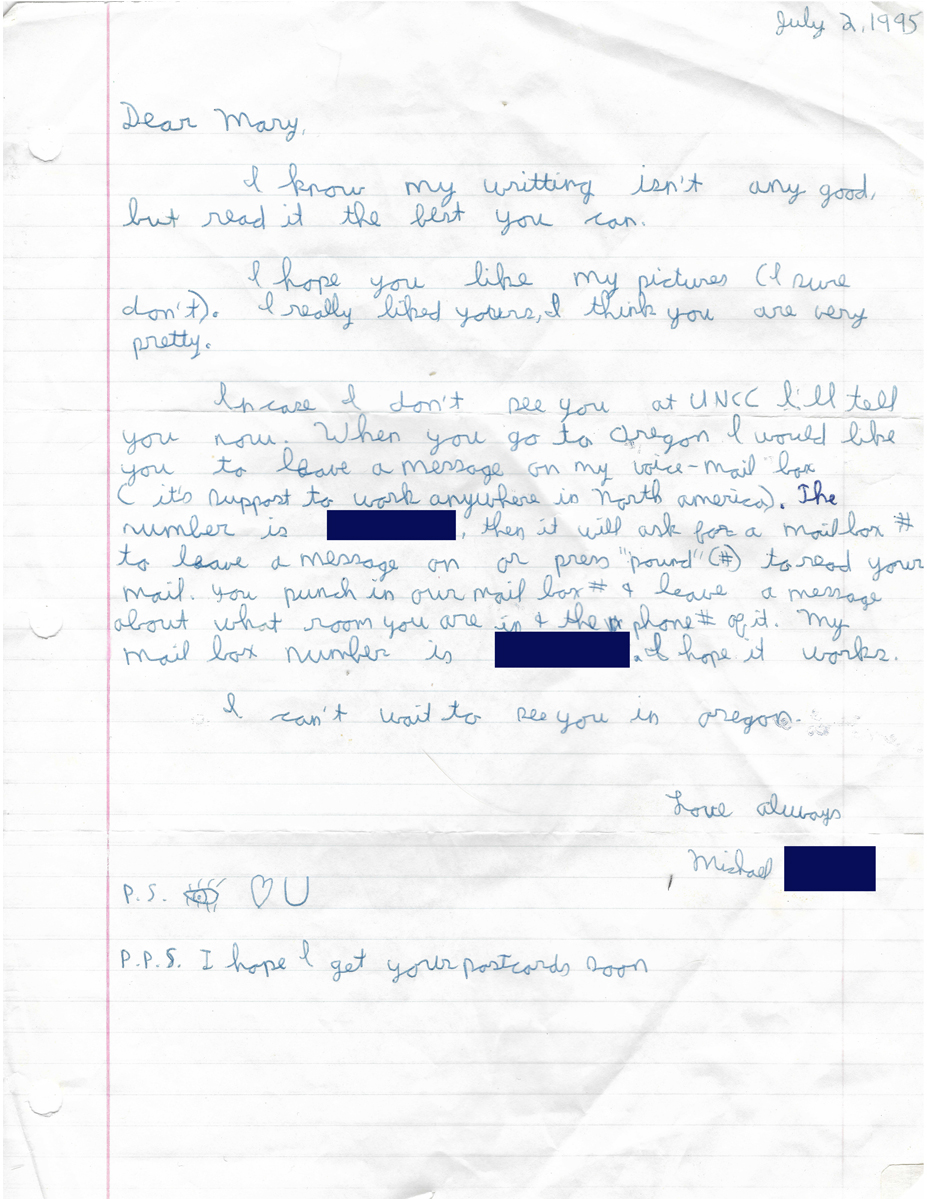 July 2, 1995
Dear Mary,
I know my writting isn't any good,
but read it the best you can.
I hope you like my pictures (I sure
don't). I really liked yours, I think you are very
pretty.
In case I don't see you at UNCC I'll tell
you now. When you go to Oregon I would like
you to leave a message on my voice-mail box
( it's suppost to work anywhere in North america). The
number is , then it will ask for a mailbox #
to leave a message on or press "pound" (#) to read your
mail. You punch in our mail box # & leave a message
about what room you are in & the phone # of it. My
mail box number is . I hope it works.
I can't wait to see you in oregon.
Love always
Michael
P.S. ♡ U
P.P.S. I hope I get your postcards soon